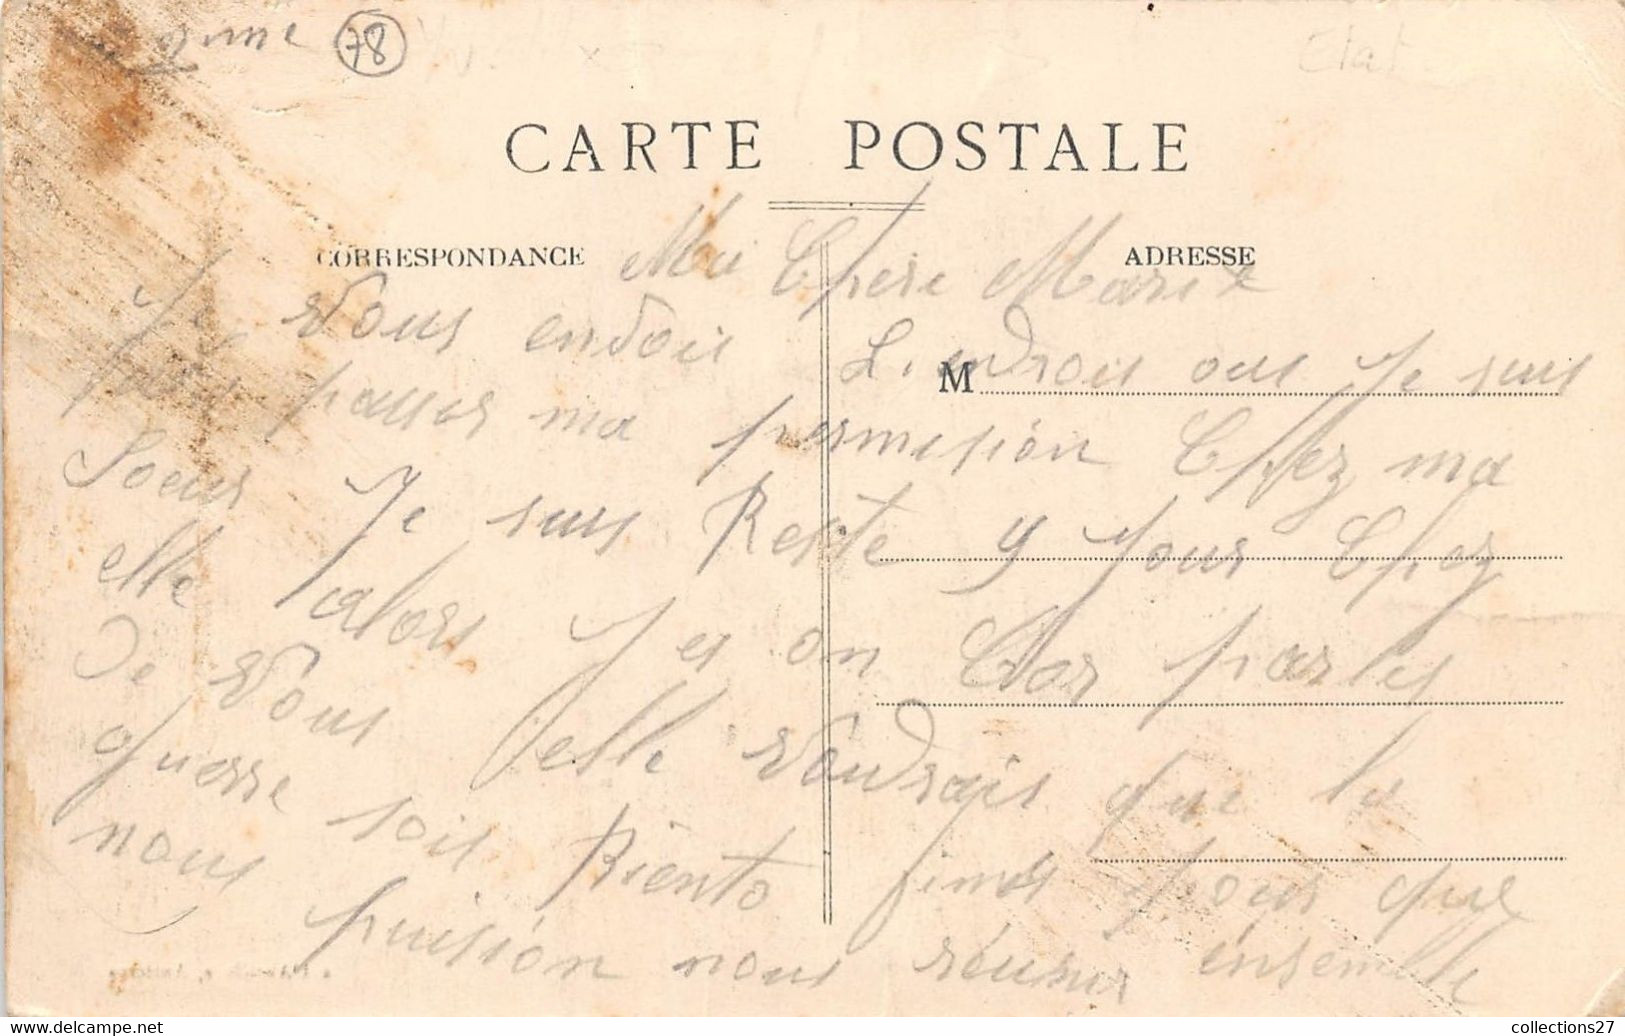 78
Etat
CARTE POSTALE
CORRESPONDANCE
ADRESSE
Ma Chere Marie
Je Vous envoie L. endroit ous Je suis
passer ma permision Chez ma
Soeur Je suis Reste 9 Jour Chez
elle alors J es on Car parles
De Vous elle Voudrais que la
guerre soit Riento finis pour que
nous puision nous réunir ensemble
M
collections27